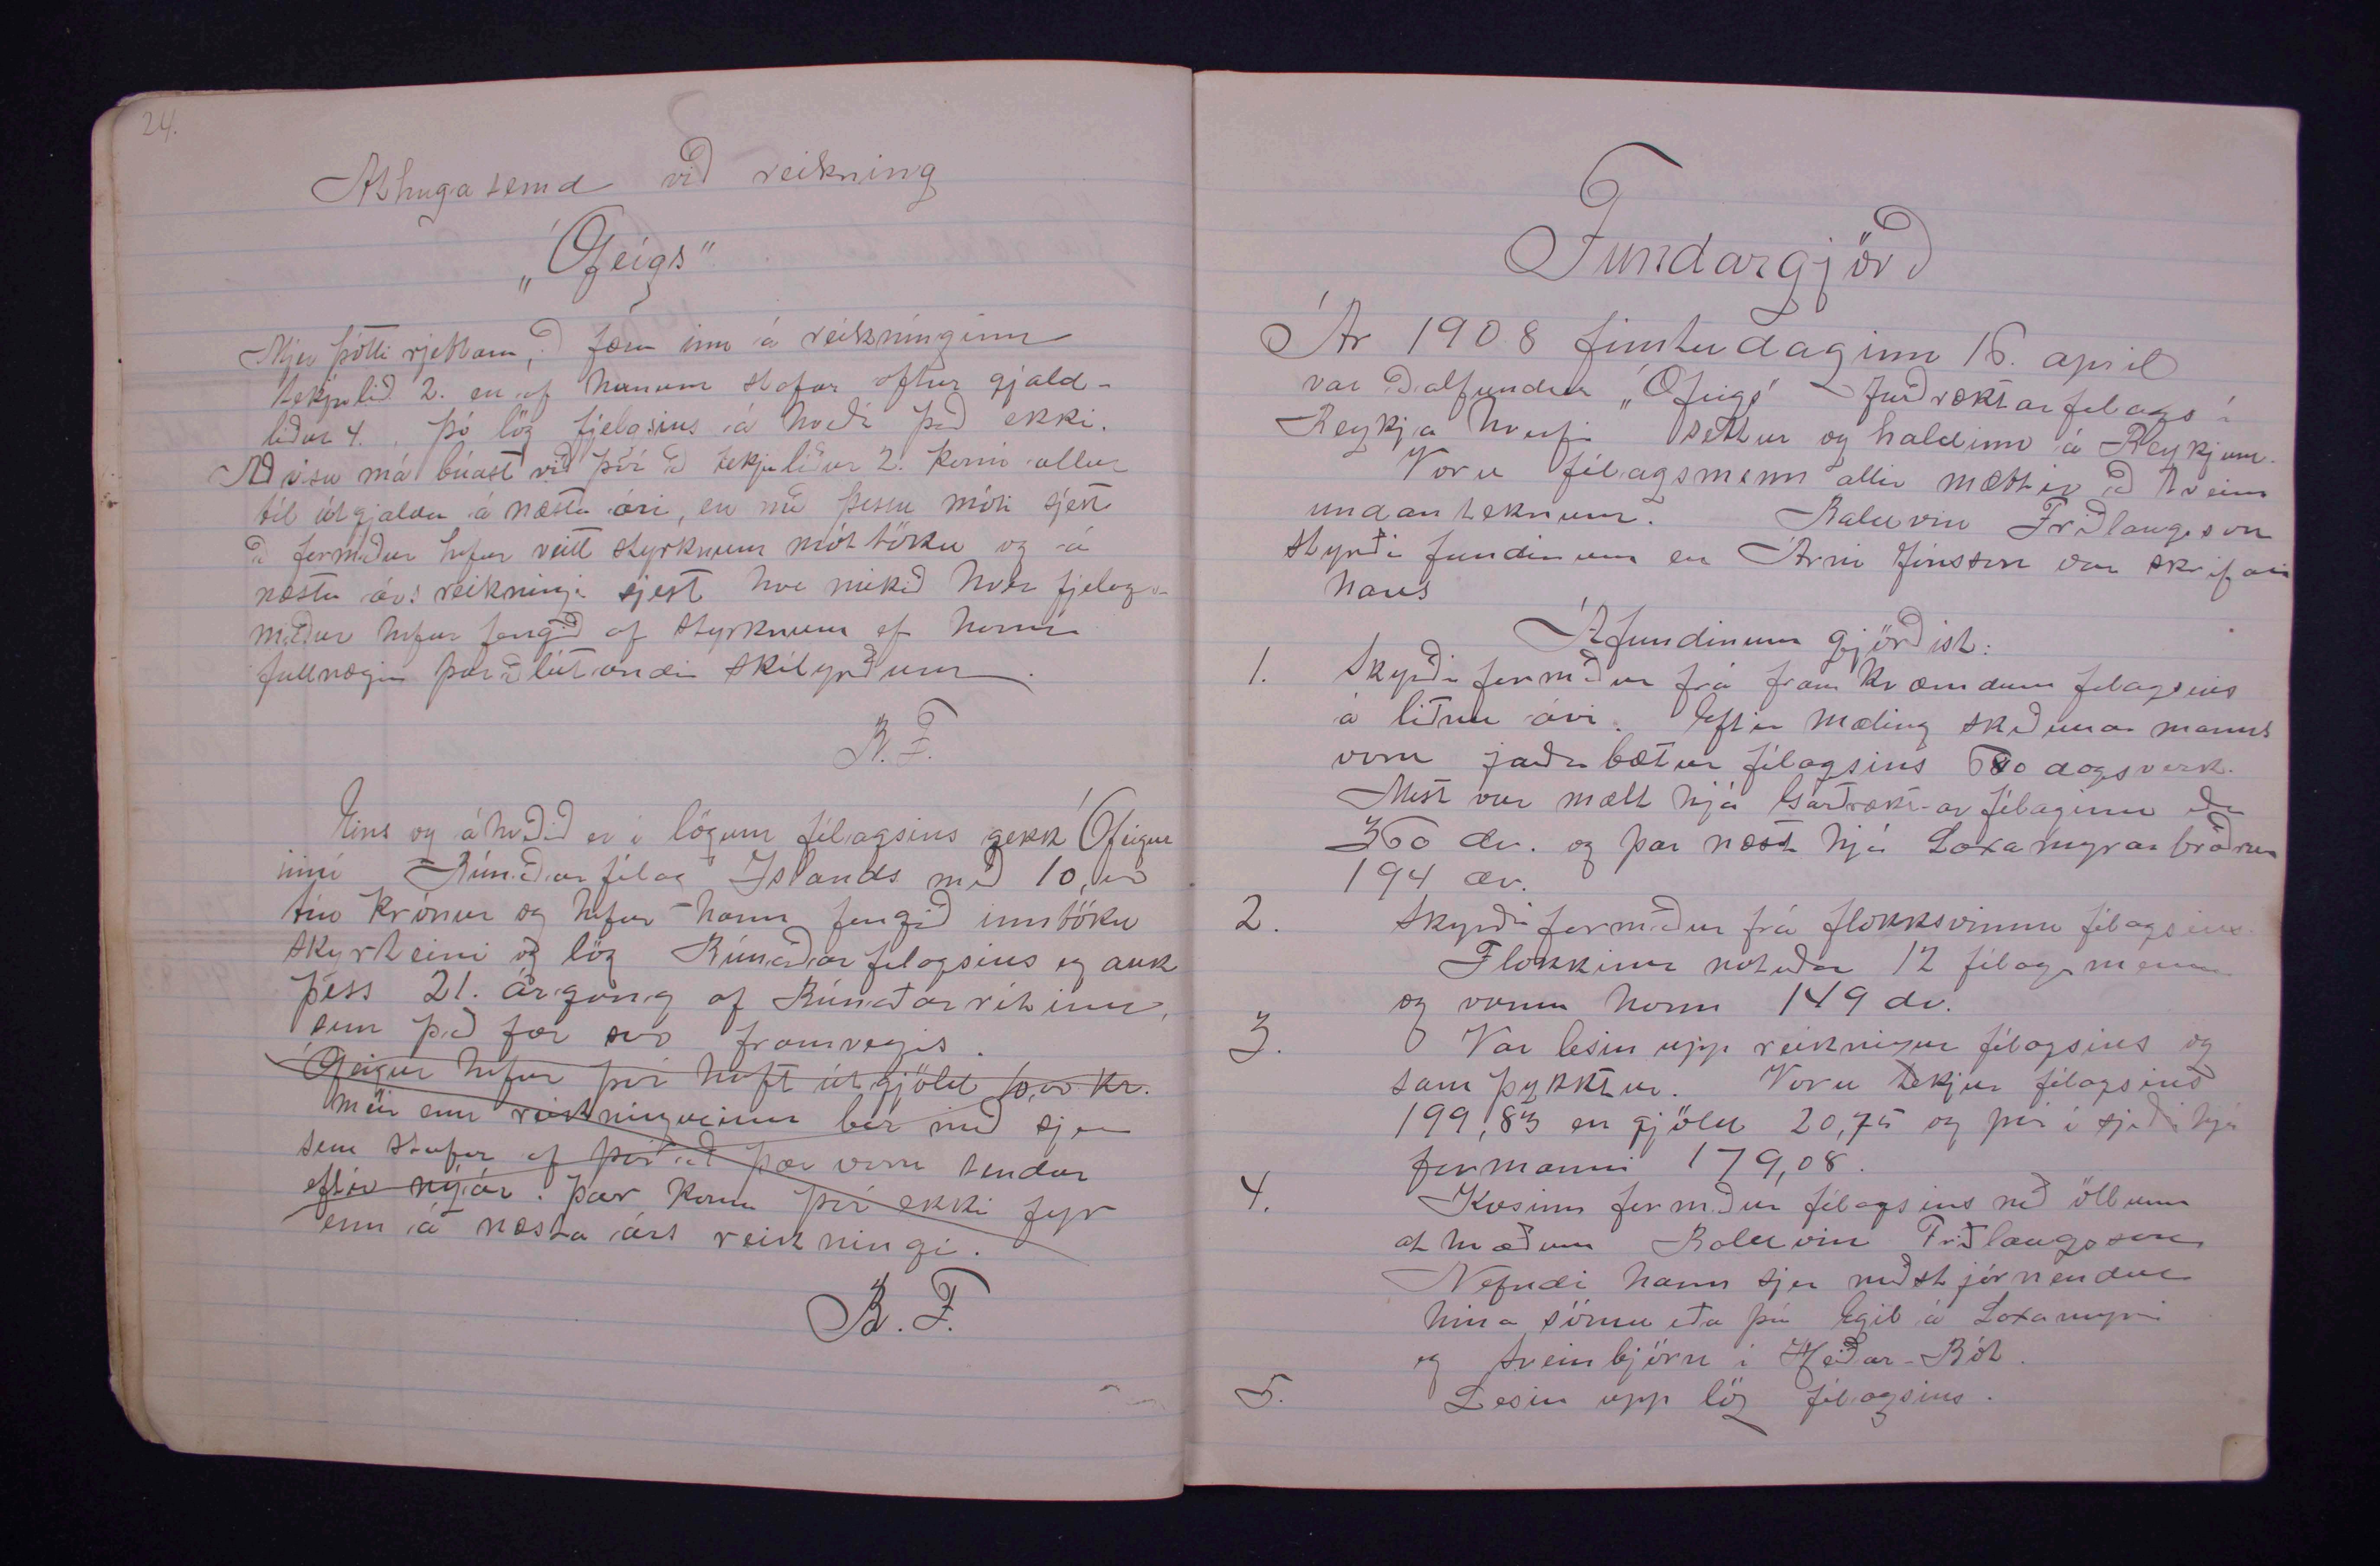 24.
Athugasemd við reikning
„Ófeigs"
Mjer þótti rjettara, að færa inn á reikninginn
tekjulið 2. en af honum stafar aftur gjald-
liður 4., þó lög fjelagsins á kveði það ekki.
Að vísu má búast við því að tekjuliður 2. komi allur
til útgjalda á næsta ári, en með þessu móti sjest
að formaður hefur veitt styrknum móttöku og á
næsta árs reikningi sjest hve mikið hver fjelags-
maður hefur fengið af styrknum ef hann
fullnægir þar að lútandi skilyrðum.
B. F.
Eins og ákveðið er í lögum félagsins gekk Ófeigur
inní Búnaðarfélag Íslands með 10,00
tíu krónur og hefur hann fengið inntöku
skyrteini og lög Búnaðarfelagsins og auk
þess 21. árgang af Búnaðarritinu,
sem það fær svo framvegis.
Ófeigur hefur því haft útgjöld 10,00 kr.
meir enn reikningurinn ber með sjer
sem stafar af því að þær voru sendar
eftir nýár. Þær koma því ekki fyr
enn á næsta árs reikningi.
B. F.
Fundargjörð
Ár 1908 fimtudaginn 16. apríl
var aðalfundur „Ófeigs" Jarðræktarfelags í
Reykjahverfi settur og haldinn á Reykjum.
Voru félagsmenn allir mættir að tveim
undanteknum. Baldvin Friðlaugsson
styrði fundinum en Árni Jónsson var skrifari
hans
Á fundinum gjörðist:
1. Skyrði formaður frá framkvæmdum felagsins
á liðnu ári. Eftir mæling skoðunar manns
voru jarðabætur félagsins dagsverk.
Mest var mælt hjá Garðræktarfélaginu eða
360 dv. og þar næst hjá Laxamyrar bræðrum
194 dv.
2. Skyrði formaður frá flokksvinnu félagsins.
Flokkinn notuðu 12 félagsmenn
og vann hann 149 dv.
3. Var lesin upp reikningur félagsins og
samþykktur. Voru tekjur félagsins
199,83 en gjöld 20,75 og því í sjóði hjá
formanni 179,08.
4. Kosinn formaður félagsins með öllum
atkvæðum Baldvin Friðlaugsson
Nefndi hann sjer meðstjórnendur
hina sömu eða þá Egil á Laxamyri
og Sveinbjörn í Heiðar-Bót.
5. Lesin upp lög félagsins.